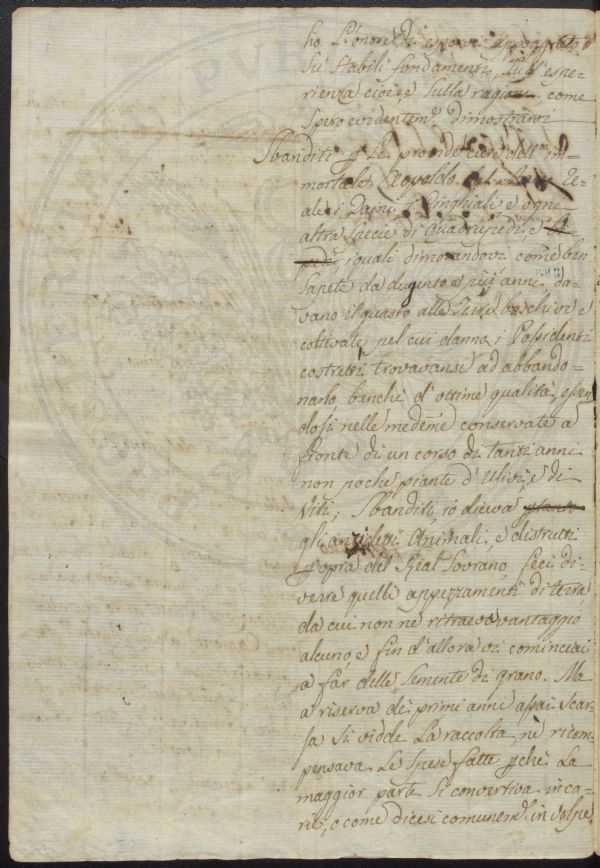 ho l'onore di esporvi appoggiato
su stabili fondamenti, sull'espe-
rienza cioè, e sulla ragione, come
spero evidentemte dimostrarvi
Sbanditi p le provide cure dell'im-
mortale Leopoldo dal Re-
ale i Daini, i Cinghiali e ogni
altra specie di Quadrupedi, e
i quali dimorandovi come ben
sapete da dugento e più anni, da-
vano il guasto alle Terre boschive e
coltivate, pel cui danno i Possidenti
costretti trovavansi ad abbando-
narlo benchè d'ottime qualità, essen
dosi nelle medeme conservate a
fronte di un corso di tanti anni
non poche piante d'Ulivi, e di
Viti; Sbanditi, io diceva
gli anzidetti Animali, e distrutti
p opra del Real Sovrano, feci di-
verre quelli appezzamenti di terra
da cui non ne ritraeva vantaggio
alcuno, e fin d'allora vi cominciai
a far delle semente di grano. Ma
a riserva dei primi anni assai scar-
sa si vidde la raccolta, nè ricom-
pensava le spese fatte pchè la
maggior parte si convertiva in ca-
rie, o come dicesi comunemte in volpe